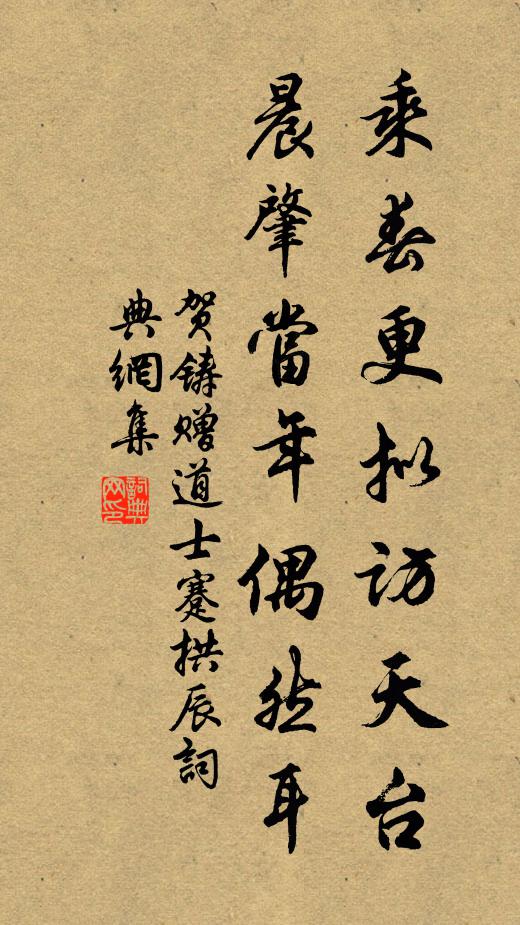 乘春更拟访天台
晨肇當年偶然耳
贺鑄赠道士蹇拱辰詞
典網集
詞典网印